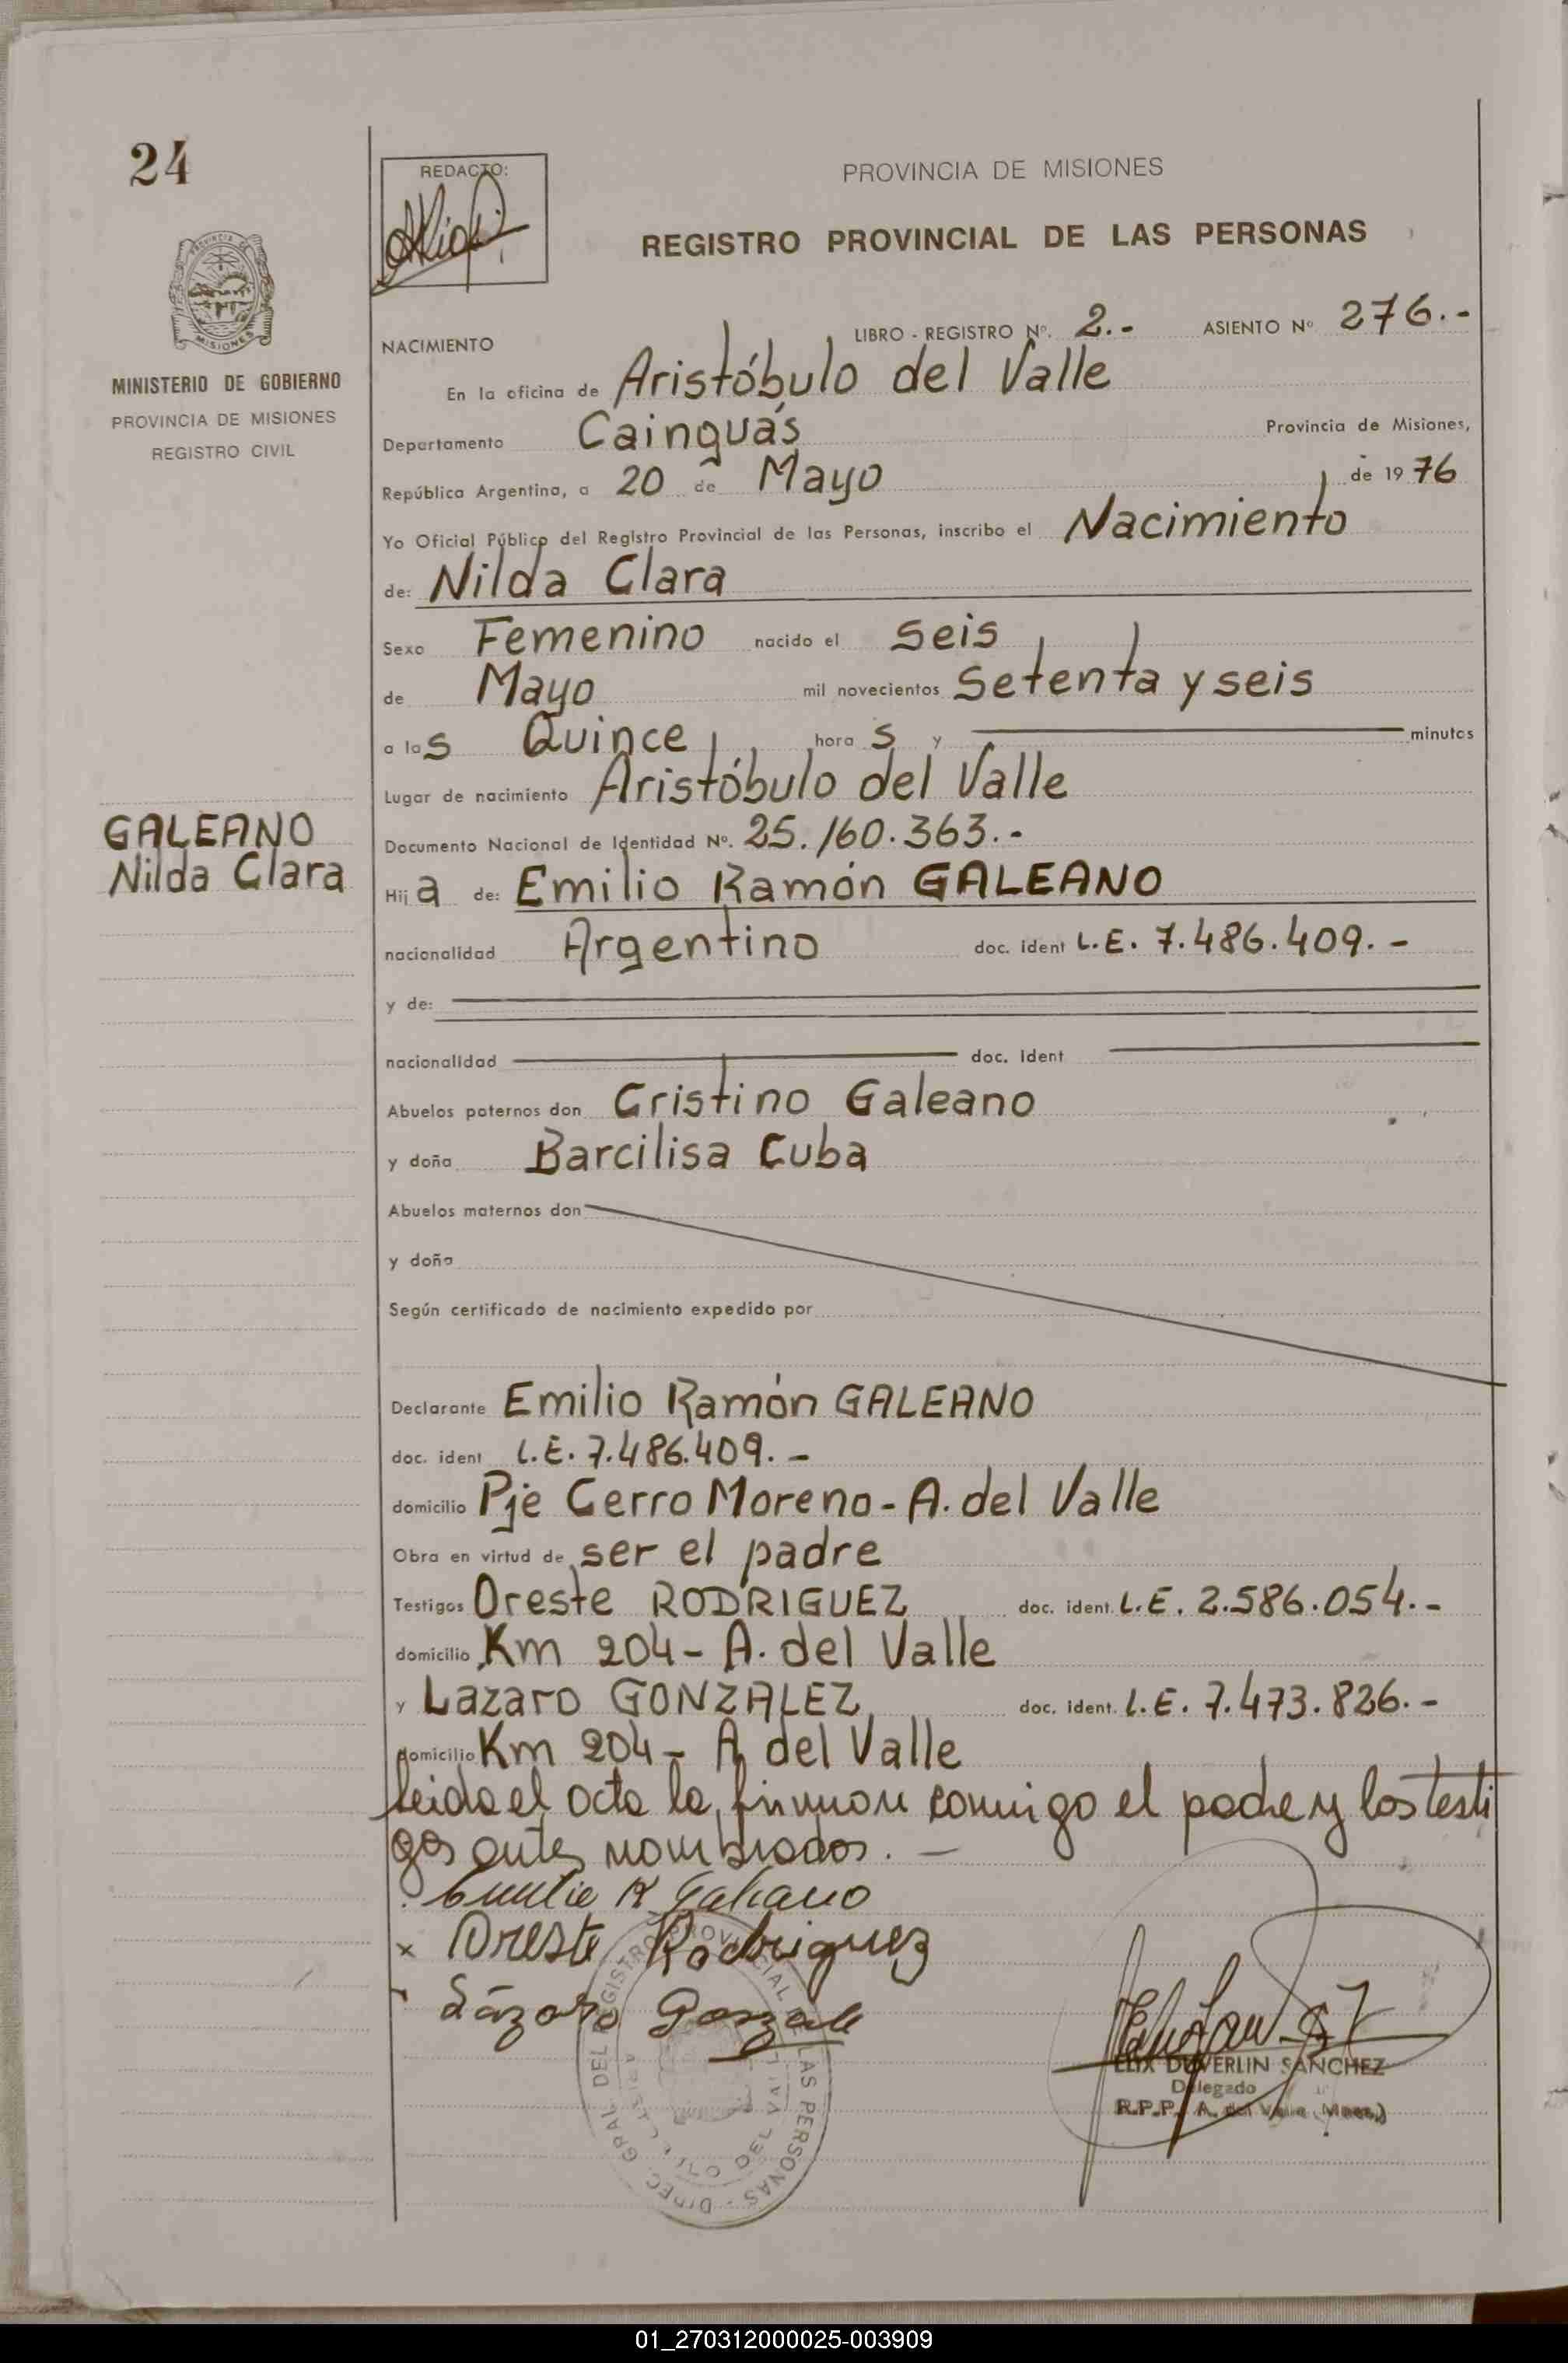 24
REDACTO:
PROVINCIA DE MISIONES
REGISTRO PROVINCIAL DE LAS PERSONAS
MINISTERIO DE GOBIERNO
PROVINCIA DE MISIONES
REGISTRO CIVIL
NACIMIENTO LIBRO - REGISTRO Nº. 2.- ASIENTO Nº 276.-
En la oficina de Aristóbulo del Valle
Departamento Cainguás Provincia de Misiones,
República Argentina, a 20 de Mayo de 1976
Yo Oficial Público del Registro Provincial de las Personas, inscribo el Nacimiento
de: Nilda Clara
Sexo Femenino nacido el seis
de Mayo mil novecientos Setenta y seis
a las Quince horas y minutos
Lugar de nacimiento Aristóbulo del Valle
GALEANO
Nilda Clara
Documento Nacional de Identidad Nº. 25.160.363.-
Hija de: Emilio Ramón GALEANO
nacionalidad Argentino doc. ident L.E. 7.486.409.-
y de:
nacionalidad doc. ident
Abuelos paternos don Cristino Galeano
y doña Barcilisa Cuba
Abuelos maternos don
y doña
Según certificado de nacimiento expedido por
Declarante Emilio Ramón GALEANO
doc. ident L.E. 7.486.409.-
domicilio Pje Cerro Moreno - A. del Valle
Obra en virtud de ser el padre
Testigos Oreste RODRIGUEZ doc. ident. L.E. 2.586.054.-
domicilio Km 204 - A. del Valle
y Lazaro GONZALEZ doc. ident. L.E. 7.473.826.-
domicilio Km 204 - A del Valle
leida el acta la firman conmigo el padre y los testi
gos antes nombrados. —
Emilio R Galeano
x Oreste Rodriguez
Lázaro Gonzale
DIREC. GRAL. DEL REGISTRO PROVINCIAL DE LAS PERSONAS
DUVERLIN SANCHEZ
Delegado
R.P.P. A. del Valle (Mnes.)
01_270312000025-003909